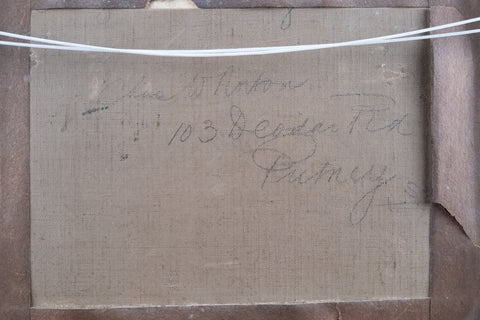 W Norton
103 Deodar Rd
Putney